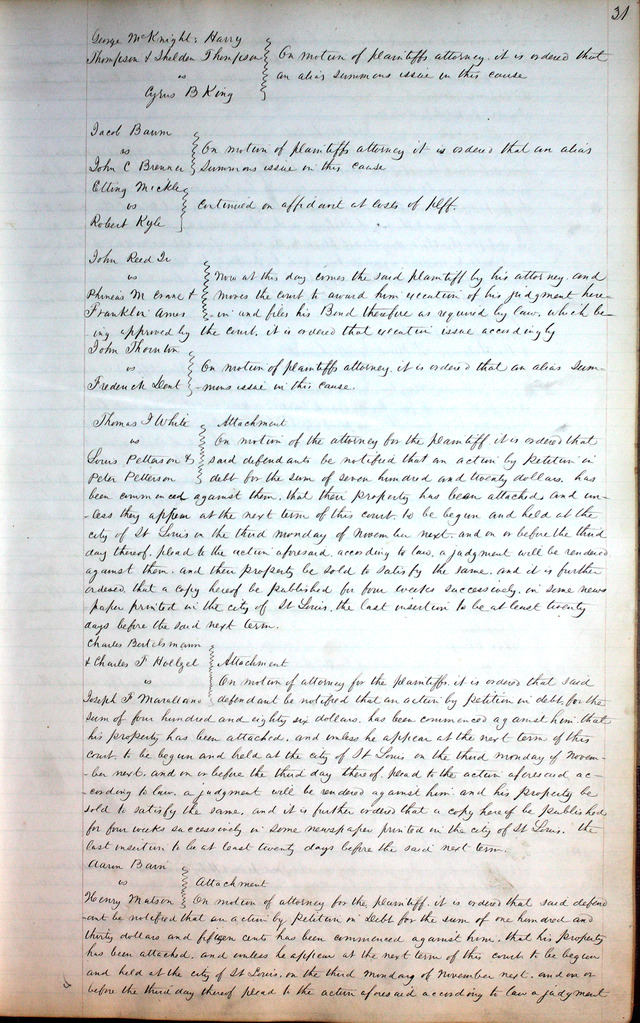 31
George McKnight, Harry
Thompson & Sheldon Thompson On motion of plaintiffs attorney. it is ordered that
vs an alias summons issue in this cause
Cyrus B King
Jacob Baum
vs On motion of plaintiffs attorney it is ordered that an alias
John C Brenner summons issue in this cause
Etting Mickle
vs Continued on affidavit at costs of plff.
Robert Kyle
John Reed Jr
vs Now at this day comes the said plaintiff by his attorney. and
Phineas M & moves the court to award him execution of his judgment here-
Franklin Ames in and files his Bond therefor as required by law. which be-
ing approved by the court. it is ordered that execution issue accordingly
John Thornton
vs On motion of plaintiffs attorney. it is ordered that an alias sum-
Frederick Dent mons issue in this cause.
Thomas J White Attachment
vs On motion of the attorney for the plaintiff it is ordered that
Louis Petterson & said defendants be notified that an action by petition in
Peter Petterson debt for the sum of seven hundred and twenty dollars. has
been commenced against them, that their property has been attached and un-
less they appear at the next term of this court. to be begun and held at the
city of St Louis on the third monday of November next. and on or before the third
day thereof. plead to the action aforesaid. according to law. a judgment will be rendered
against them. and their property be sold to satisfy the same. and it is further
ordered that a copy hereof be published for four weeks successively. in some news
paper printed in the city of St Louis. the last insertion to be at least twenty
days before the said next term.
Charles Bertelsmann
& Charles F Holtzel Attachment
vs On motion of attorney for the plaintiffs. it is ordered that said
Joseph F defendant be notified that an action by petition in debt. for the
sum of four hundred and eighty six dollars. has been commenced against him. that
his property has been attached. and unless he appear at the next term of this
court. to be begun and held at the city of St Louis on the third monday of Novem-
ber next. and on or before the third day thereof. plead to the action aforesaid ac-
cording to law. a judgment will be rendered against him and his property be
sold to satisfy the same. and it is further ordered that a copy hereof be published
for four weeks successively in some newspaper printed in the city of St Louis. the
last insertion to be at least twenty days before the said next term.
Aaron Barn
vs Attachment
Henry Matson On motion of attorney for the plaintiff. it is ordered that said defend
ant be notified that an action by petition in Debt for the sum of one hundred and
thirty dollars and fifteen cents has been commenced against him. that his property
has been attached. and unless he appear at the next term of this court to be begun
and held at the city of St Louis. on the third monday of November next. and on or
before the third day thereof plead to the action aforesaid according to law a judgment